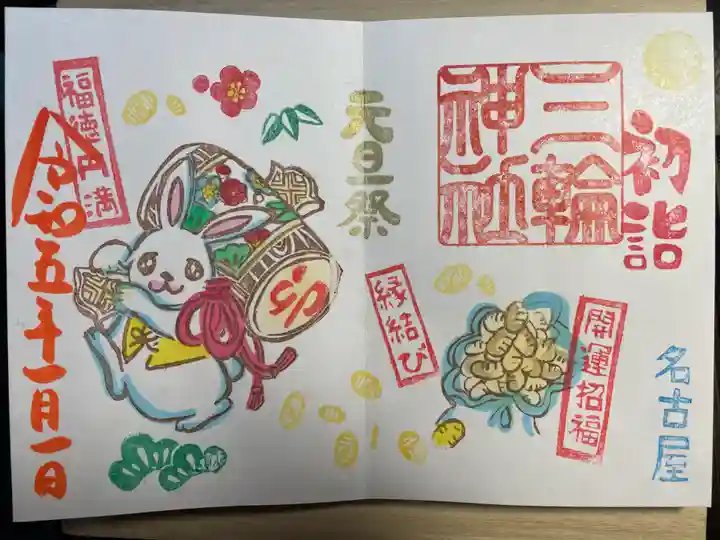 初詣
三輪
神社
名古屋
開運招福
縁結び
元旦祭
福徳円満
令和五年一月一日